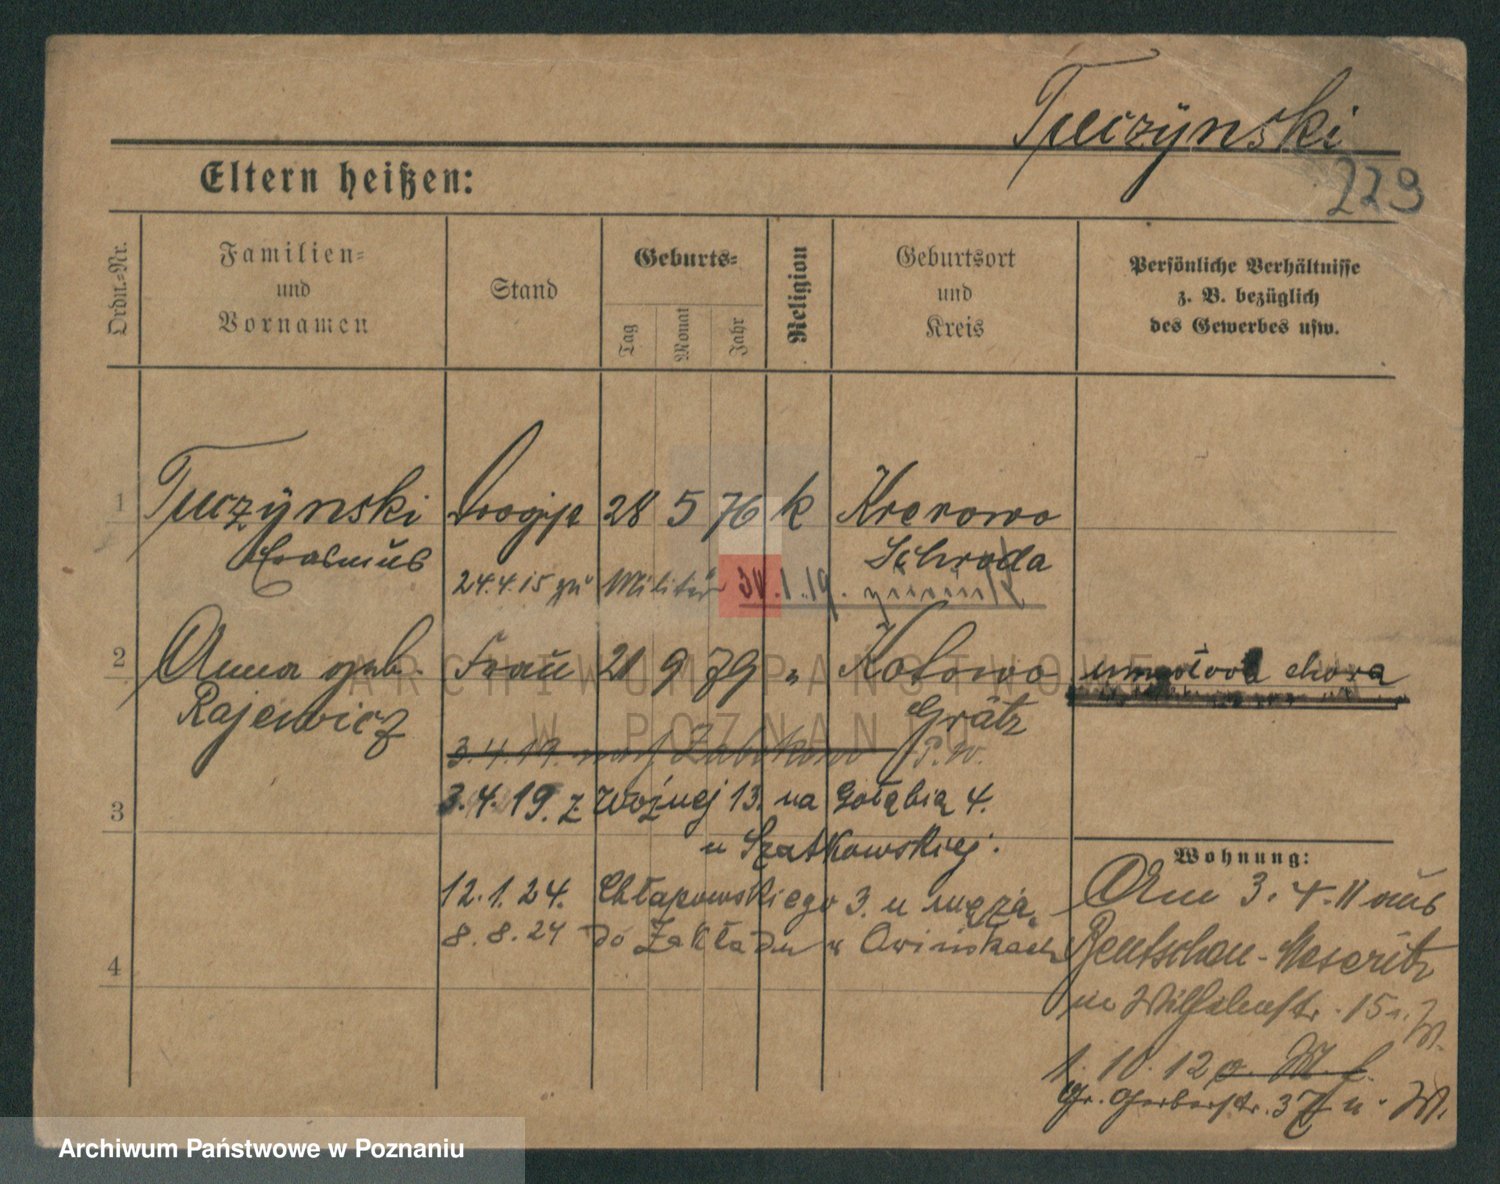 Tuczÿnski
229
Eltern heißen:
Ordn.-Nr.
Familien-
und
Vornamen
Stand
Geburts-
Tag
Monat
Jahr
Religion
Geburtsort
und
Kreis
Persönliche Verhältnisse
z. B. bezüglich
des Gewerbes usw.
1 Tuczÿnski 28 5 76 k Krerowo
Erasmus Schroda
24.4.15 zu Militär 30.1.19.
2 Anna geb. Frau 21 9 79 " Kotowo umysłowo chora
Rajewicz Grätz
3.4.19.
3 3.4.19. z Woźnej 13. na Gołębią 4.
u Szatkowskiej.
Wohnung:
12.1.24. Chłapowskiego 3. u męża.
Am 3.4.11 aus
8.8.24 do Zakładu w Owinskach
Bentschen-Meseritz
4
in Wilhelmstr. 15
1.10.12
Gr. Gerberstr. 37
ARCHIWUM PAŃSTWOWE
W POZNANIU
Archiwum Państwowe w Poznaniu